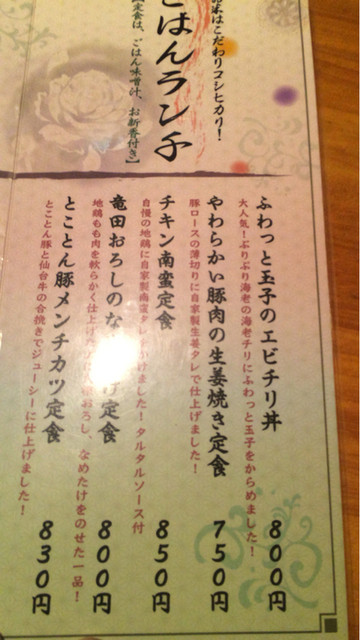 米はこだわりコシヒカリ！
ごはんランチ
【定食は、ごはん味噌汁、お新香付き】
ふわっと玉子のエビチリ丼
800円
大人気！ぷりぷり海老の海老チリにふわっと玉子をからめました！
やわらかい豚肉の生姜焼き定食
750円
豚ロースの薄切りに自家製生姜タレで仕上げました！
チキン南蛮定食
850円
自慢の地鶏に自家製南蛮タレをかけました！タルタルソース付
竜田おろしのな 定食
800円
地鶏もも肉を軟らかく仕上げ おろし、なめたけをのせた一品！
とことん豚メンチカツ定食
830円
とことん豚と仙台牛の合挽きでジューシーに仕上げました！